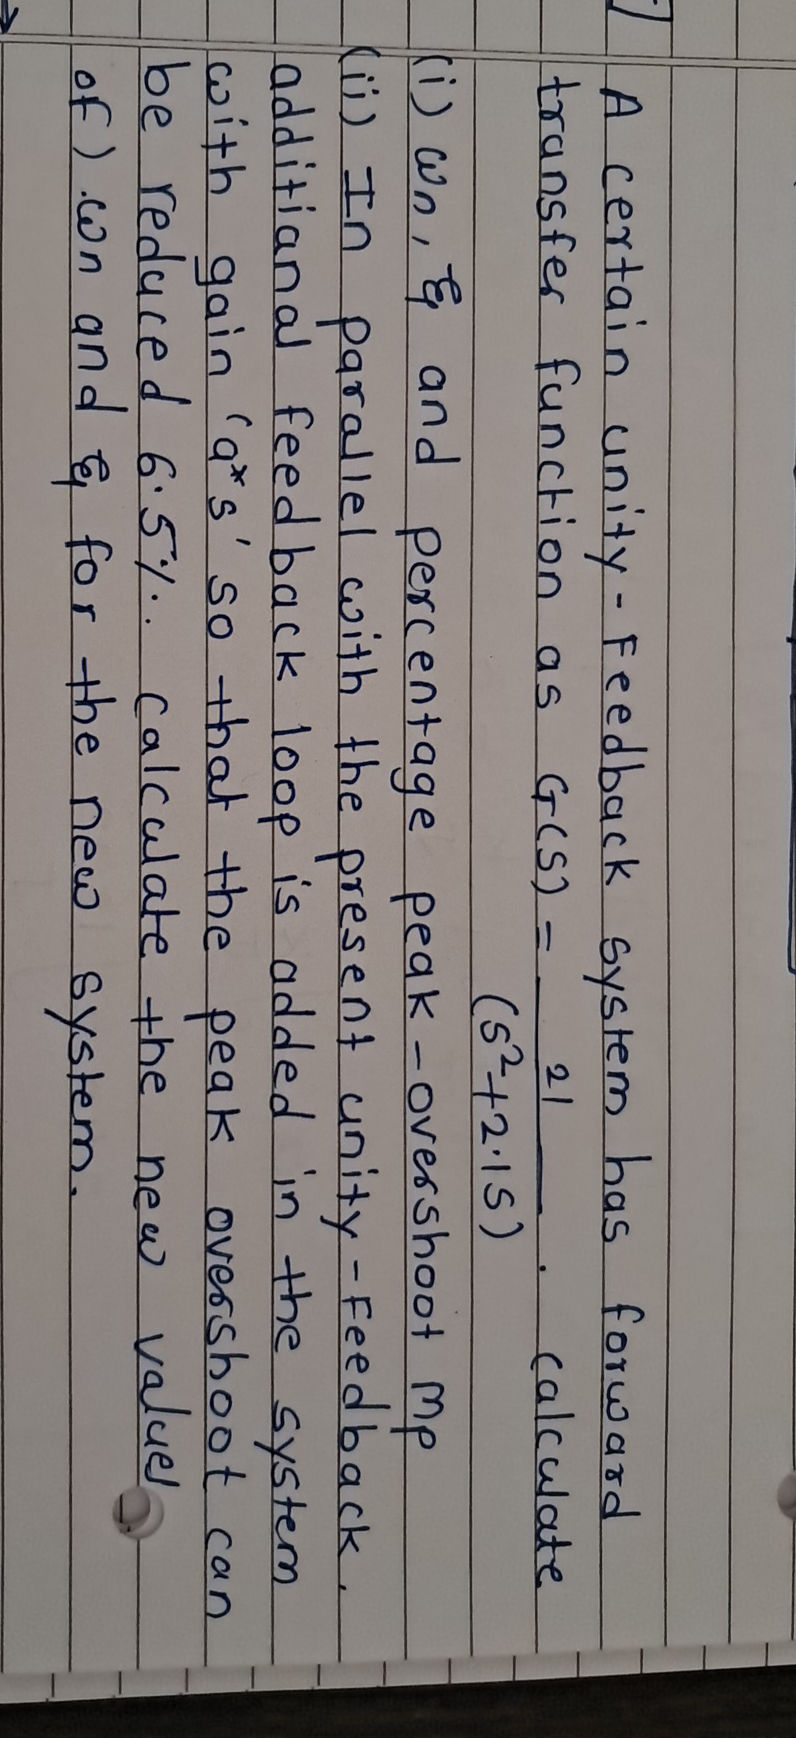 A certain unity-Feedback system has forward
transfer function as G(s) = 21
(s²+2.1s) . calculate
(i) ωn, ξ and percentage peak-overshoot Mp
(ii) In parallel with the present unity-Feedback,
additianal feedback loop is added in the system
with gain 'a*s' so that the peak overshoot can
be reduced 6.5%. calculate the new value
of) .ωn and ξ for the new system.